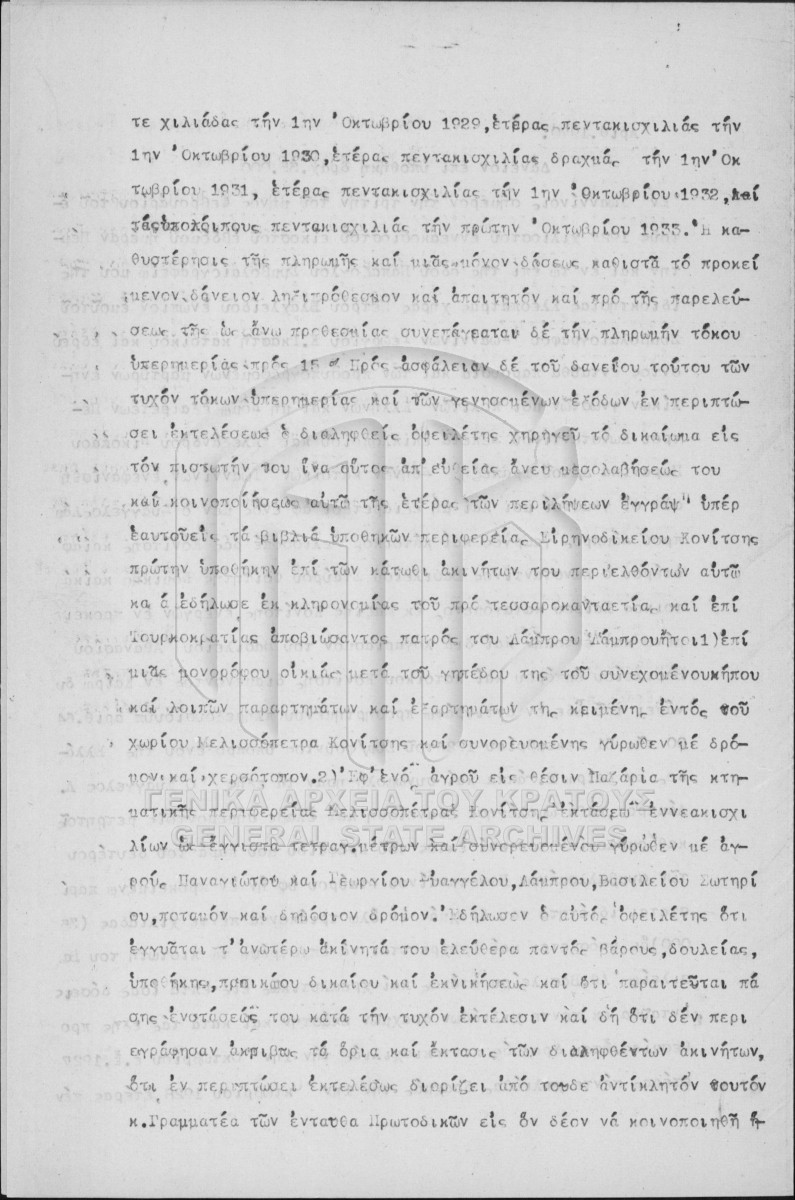 τε χιλιάδας τήν 1ην Ὀκτωβρίου 1929,ἑτέρας πεντακισχιλιάς τήν
1ην Ὀκτωβρίου 1930,ἑτέρας πεντακισχιλίας δραχμάς τήν 1ην Ὀκ
τωβρίου 1931, ἑτέρας πεντακισχιλίας τήν 1ην Ὀκτωβρίου 1932,καί
τάς ὑπολοίπους πεντακισχιλιάς τήν πρώτην Ὀκτωβρίου 1933.Ἡ κα-
θυστέρησις τῆς πληρωμῆς καί μιᾶς μόνον δόσεως καθιστᾶ τό προκεί
μενον δάνειον ληξιπρόθεσμον καί ἀπαιτητόν καί πρό τῆς παρελεύ-
σεως τῆς ὡς ἄνω προθεσμίας συνεπάγεαται δέ τήν πληρωμήν τόκου
ὑπερημερίας πρός 15 % Πρός ἀσφάλειαν δέ τοῦ δανείου τούτου τῶν
τυχόν τόκων ὑπερημερίας καί τῶν γενησομένων ἐξόδων ἐν περιπτώ-
σει ἐκτελέσεως ὁ διαληφθείς ὀφειλέτης χηρηγεῦ τό δικαίωμα εἰς
τόν πιστωτήν του ἵνα οὗτος ἀπ'εὐθείας ἄνευ μεσολαβήσεώς του
καί κοινοποιήσεως αὐτῶ τῆς ἑτέρας τῶν περιλήψεων ἐγγράψη ὑπέρ
ἑαυτοῦεἰς τά βιβλιά ὑποθηκῶν περιφερείας Εἰρηνοδικείου Κονίτσης
πρώτην ὑποθήκην ἐπί τῶν κάτωθι ἀκινήτων του περιελθόντων αὐτῶ
κα ἁ ἐδήλωσε ἐκ κληρονομίας τοῦ πρό τεσσαροκανταετίας καί ἐπί
Τουρκοκρατίας ἀποβιώσαντος πατρός του Λάμπρου Λάμπρουἤτοι1)ἐπί
μιᾶς μονορόφου οἰκιάς μετά τοῦ γηπέδου της τοῦ συνεχομένουκήπου
καί λοιπῶν παραρτημάτων καί ἐξαρτημάτων τῆς κειμένης ἐντός τοῦ
χωρίου Μελισσόπετρα Κονίτσης καί συνορευομένης γύρωθεν μέ δρό-
μον καί χερσότοπον.2)Ἐφ'ἑνός ἀγροῦ εἰς θέσιν Μαζάρια τῆς κτη-
ματικῆς περιφερείας Μελισσοπέτρας Κονίτσης ἐκτάσεως ἐννεακισχι
ΓΕΝΙΚΑ ΑΡΧΕΙΑ ΤΟΥ ΚΡΑΤΟΥΣ
GENERAL STATE ARCHIVES
λίων ὡς ἔγγιστα τετραγ.μέτρων καί συνορευομένου γύρωθεν μέ ἀγ-
ρούς Παναγιώτου καί Γεωργίου Εὐαγγέλου,Λάμπρου,Βασιλείου Σωτηρί
ου,ποταμόν καί δημόσιον δρόμον.Ἐδήλωσεν ὁ αὐτός ὀφειλέτης ὅτι
ἐγγυᾶται τ'ἀνωτέρω ἀκίνητά του ἐλεύθερα παντός βάρους,δουλείας,
ὑποθήκης,προικώου δικαίου καί ἐκνικήσεως καί ὅτι παραιτεῦται πά
σης ἐνστάσεώς του κατά τήν τυχόν ἐκτέλεσιν καί δή ὅτι δέν περι
εγράφησαν ἀκριβῶς τά ὅρια καί ἔκτασις τῶν διαληφθέντων ἀκινήτων,
ὅτι ἐν περιπτώσει ἐκτελέσως διορίζει ἀπό τοῦδε ἀντίκλητόν τουτόν
κ.Γραμματέα τῶν ἐνταῦθα Πρωτοδικῶν εἰς ὅν δέον νά κοινοποιηθῆ ἡ-